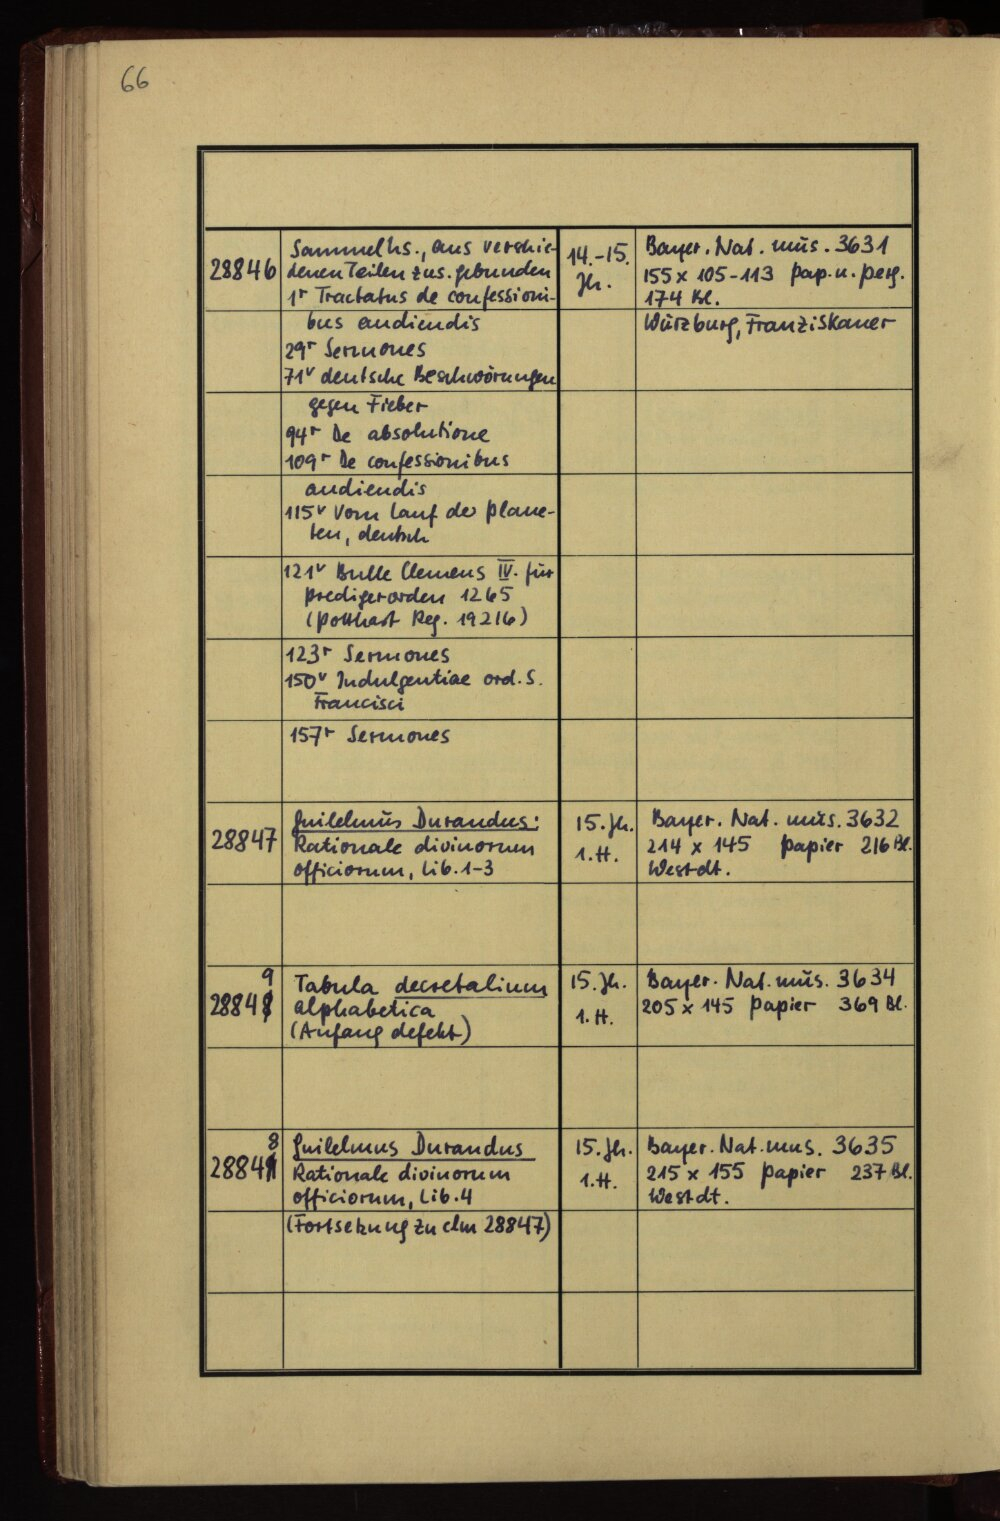 66
28846
Sammelhs., aus verschie-
denen Teilen zus. gebunden
1r Tractatus de confessioni-
bus audiendis
29r Sermones
71v deutsche Beschwörungen
gegen Fieber
94r De absolutione
109r De confessionibus
audiendis
115v Vom Lauf der Plane-
ten, deutsch
121v Bulle Clemens IV. für
Predigerorden 1265
(Potthast Reg. 19216)
123r Sermones
150v Indulgentiae ord. S.
Francisci
157r Sermones
14.-15.
Jh.
Bayer. Nat. mus. 3631
155 x 105-113 Pap. u. Perg.
174 Bl.
Würzburg, Franziskaner
28847
Guilelmus Durandus:
Rationale divinorum
officiorum, Lib. 1-3
15. Jh.
1. H.
Bayer. Nat. mus. 3632
214 x 145 Papier 216 Bl.
Westdt.
9
28848
Tabula decretalium
alphabetica
(Anfang defekt)
15. Jh.
1. H.
Bayer. Nat. mus. 3634
205 x 145 Papier 369 Bl.
8
28849
Guilelmus Durandus
Rationale divinorum
officiorum, Lib. 4
(Fortsetzung zu clm 28847)
15. Jh.
1. H.
Bayer. Nat. mus. 3635
215 x 155 Papier 237 Bl.
Westdt.